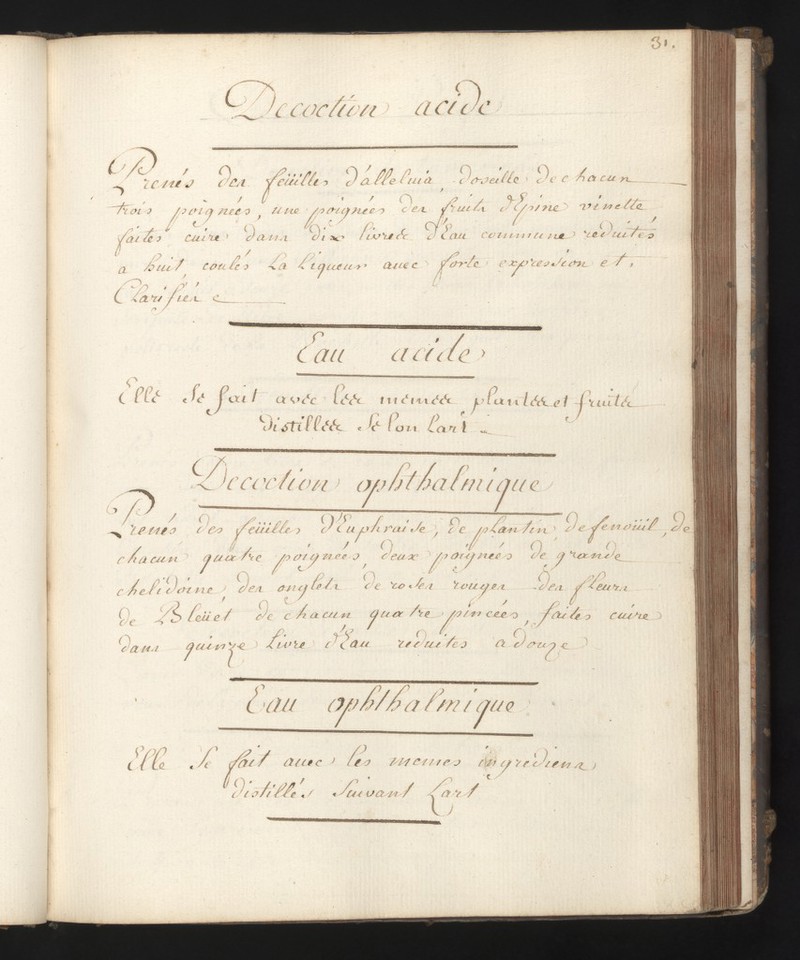 31.
Decoction acide
Prenés des feüilles d'alleluia, doseille de chacun
trois poignées, une poignées des fruits d'Epine vinette
faites cuire dans dix livres d'Eau commune reduités
a huit, coulés La Liqueur avec forte expression et.
Clarifiér
Eau acide
Elle se fait avec les memes plantes et fruits
distillés selon Lart
Decoction ophthalmique
Prenés des feüilles d'Euphraise, de plantin, de fenoüil, de
chacun quatre poignées, deux poignées de grande
chelidoine, des onglets de roses rouges des fleurs
de Bleüet de chacun quatre pincées, faites cuire
dans quinze Livre d'Eau reduites a douze
Eau ophthalmique
Elle se fait avec les memes ingrediens
distillés suivant Lart